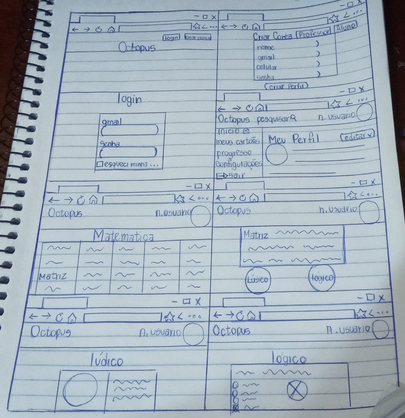 login
Octopus
Criar Conta (Professor) (Aluno)
nome
gmail
celular
senha
(criar Perfil)
login
gmail
senha
esqueci minha ...
Octopus pesquisar
n. usuario
inicio
meus cartões
progresso
configurações
sair
Meu Perfil
(editar)
Octopus
n. usuario
Matematica
Matriz
Octopus
n. usuario
Matriz
lúdico
lógico
Octopus
n. usuario
lúdico
Octopus
n. usuario
lógico